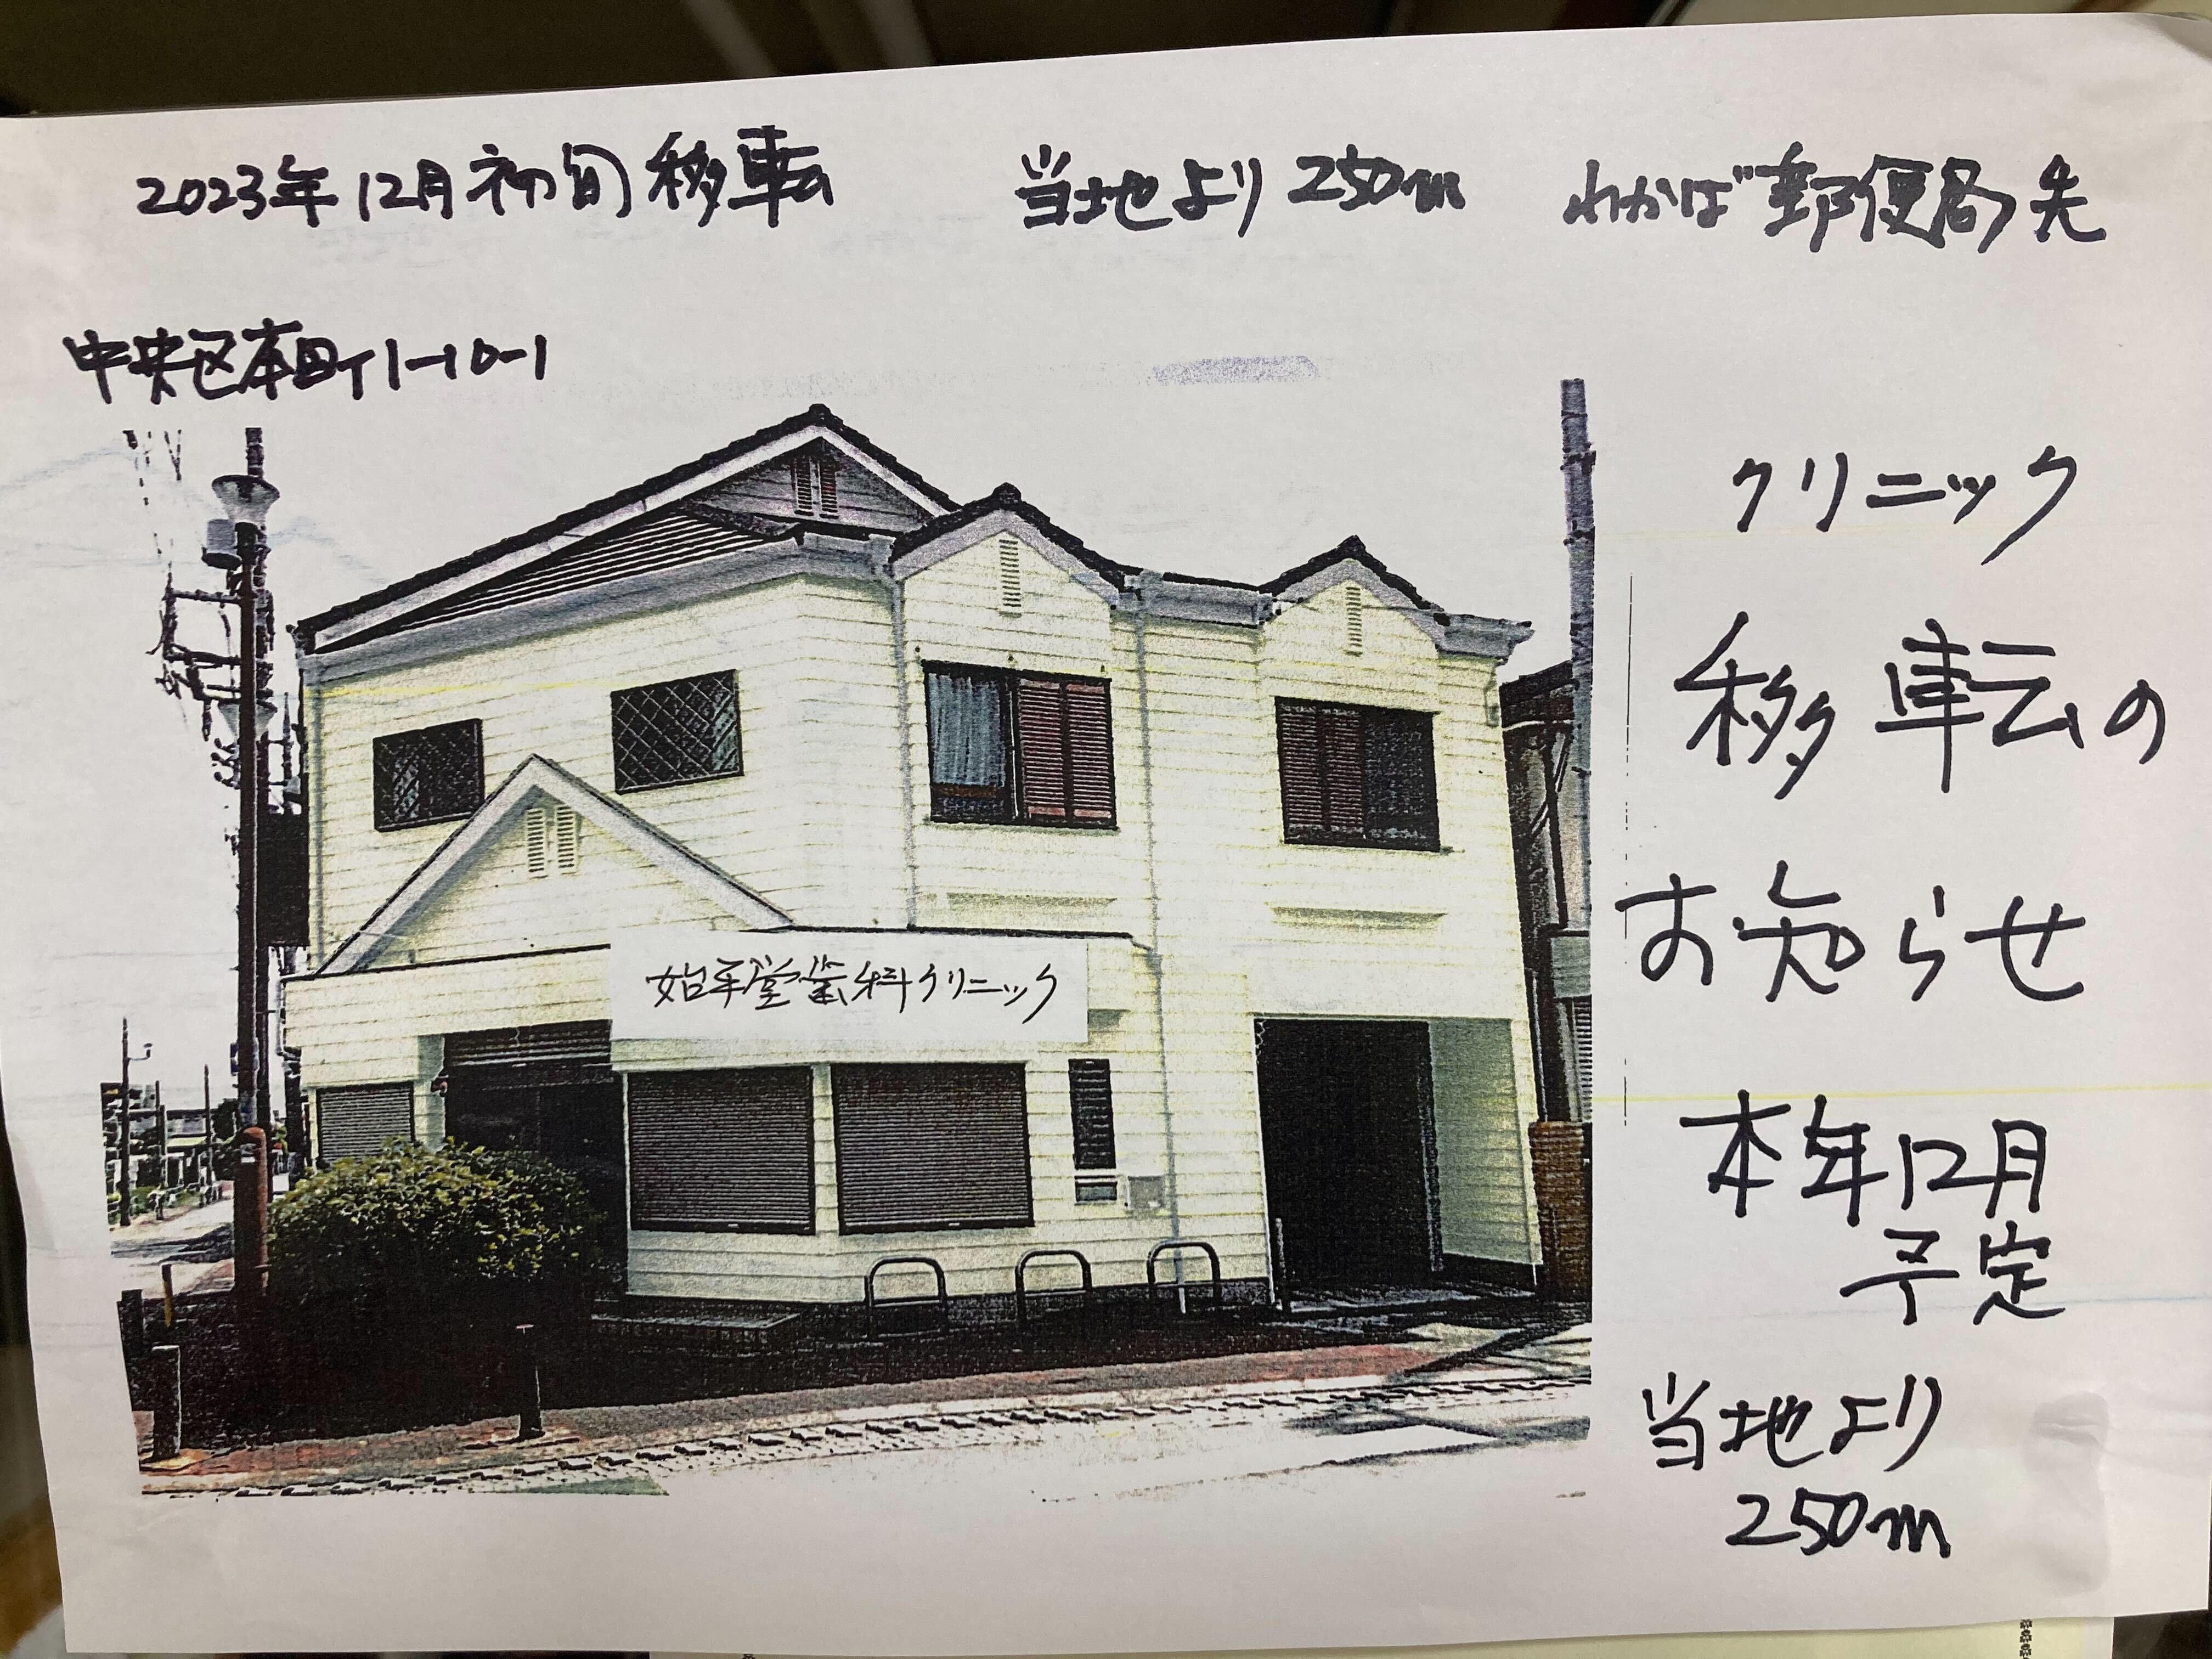 2023年12月初旬移転 当地より250m わかば郵便局先
中央区本町1-10-1
クリニック
移転の
お知らせ
本年12月
予定
当地より
250m
始平堂歯科クリニック